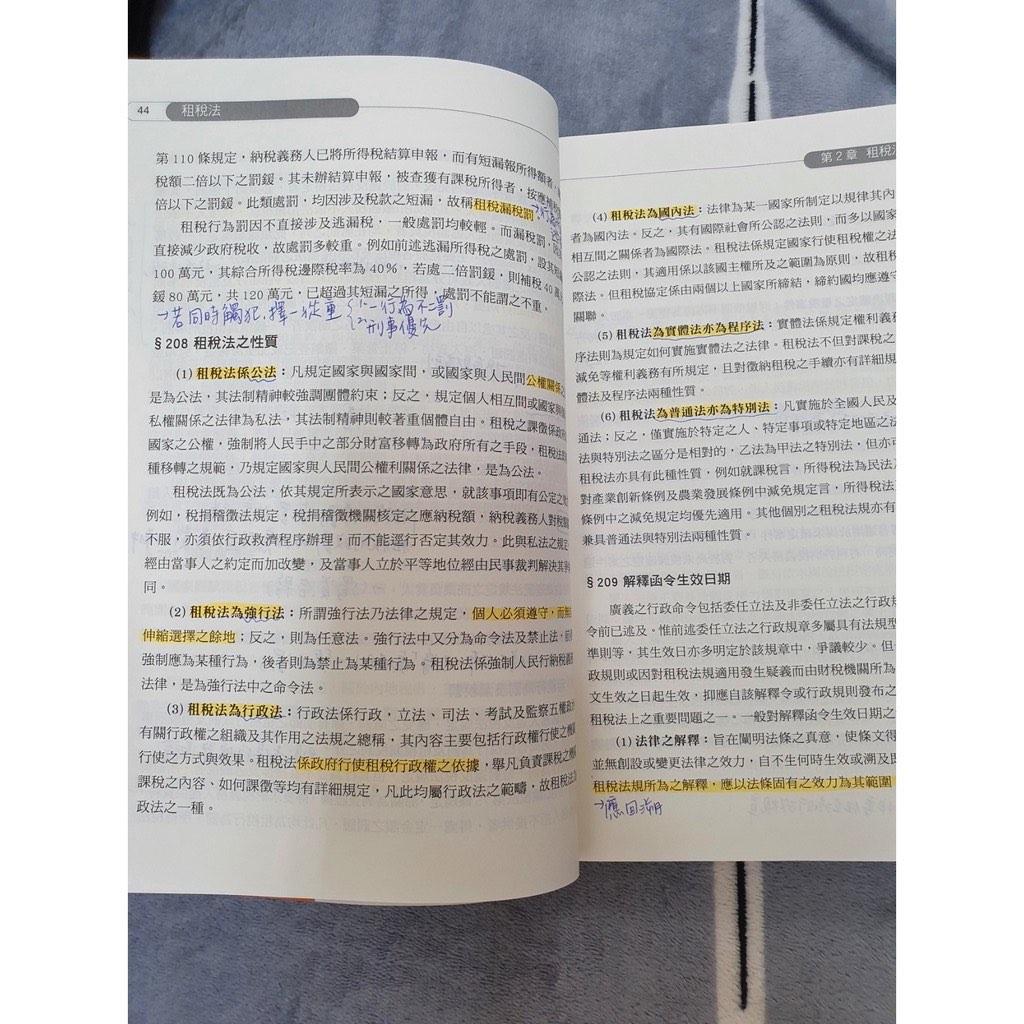 44 租稅法
第 110 條規定，納稅義務人已將所得稅結算申報，而有短漏報所得額者，
稅額二倍以下之罰鍰。其未辦結算申報，被查獲有課稅所得者，按應補稅
倍以下之罰鍰。此類處罰，均因涉及稅款之短漏，故稱租稅漏稅罰
租稅行為罰因不直接涉及逃漏稅，一般處罰均較輕。而漏稅罰，
直接減少政府稅收，故處罰多較重。例如前述逃漏所得稅之處罰，設其
100 萬元，其綜合所得稅邊際稅率為 40%，若處二倍罰鍰，則補稅 40 萬
鍰 80 萬元，共 120 萬元，已超過其短漏之所得，處罰不能謂之不重。
→若同時觸犯,擇一從重 (1)一行為不二罰
(2)刑事優先
§ 208 租稅法之性質
(1) 租稅法係公法：凡規定國家與國家間，或國家與人民間公權關係
是為公法，其法制精神較強調團體約束；反之，規定個人相互間或國家與
私權關係之法律為私法，其法制精神則較著重個體自由。租稅之課徵係政府
國家之公權，強制將人民手中之部分財富移轉為政府所有之手段，租稅法
種移轉之規範，乃規定國家與人民間公權利關係之法律，是為公法。
租稅法既為公法，依其規定所表示之國家意思，就該事項即有公定之
例如，稅捐稽徵法規定，稅捐稽徵機關核定之應納稅額，納稅義務人對
不服，亦須依行政救濟程序辦理，而不能逕行否定其效力。此與私法之規定
經由當事人之約定而加改變，及當事人立於平等地位經由民事裁判解決其爭
同。
(2) 租稅法為強行法：所謂強行法乃法律之規定，個人必須遵守，而無
伸縮選擇之餘地；反之，則為任意法。強行法中又分為命令法及禁止法，
強制應為某種行為，後者則為禁止為某種行為。租稅法係強制人民行納稅義務
法律，是為強行法中之命令法。
(3) 租稅法為行政法：行政法係行政，立法、司法、考試及監察五權
有關行政權之組織及其作用之法規之總稱，其內容主要包括行政權行使之機
行使之方式與效果。租稅法係政府行使租稅行政權之依據，舉凡負責課稅之機
課稅之內容、如何課徵等均有詳細規定，凡此均屬行政法之範疇，故租稅法
政法之一種。
第 2 章 租稅法
(4) 租稅法為國內法：法律為某一國家所制定以規律其內
者為國內法。反之，其有國際社會所公認之法則，而多以國家
相互間之關係者為國際法。租稅法係規定國家行使租稅權之法
公認之法則，其適用係以該國主權所及之範圍為原則，故租稅
際法。但租稅協定係由兩個以上國家所締結，締約國均應遵守
關聯。
(5) 租稅法為實體法亦為程序法：實體法係規定權利義務
序法則為規定如何實施實體法之法律。租稅法不但對課稅之
減免等權利義務有所規定，且對徵納租稅之手續亦有詳細規
體法及程序法兩種性質。
(6) 租稅法為普通法亦為特別法：凡實施於全國人民及
通法；反之，僅實施於特定之人、特定事項或特定地區之法
法與特別法之區分是相對的，乙法為甲法之特別法，但亦可
租稅法亦具有此種性質，例如就課稅言，所得稅法為民法及
對產業創新條例及農業發展條例中減免規定言，所得稅法
條例中之減免規定均優先適用。其他個別之租稅法規亦有
兼具普通法與特別法兩種性質。
§ 209 解釋函令生效日期
廣義之行政命令包括委任立法及非委任立法之行政規
令前已述及。惟前述委任立法之行政規章多屬具有法規型
準則等，其生效日亦多明定於該規章中，爭議較少。但
政規則或因對租稅法規適用發生疑義而由財稅機關所為
文生效之日起生效，抑應自該解釋令或行政規則發布之
租稅法上之重要問題之一。一般對解釋函令生效日期之
(1) 法律之解釋：旨在闡明法條之真意，使條文得
並無創設或變更法律之效力，自不生何時生效或溯及既
租稅法規所為之解釋，應以法條固有之效力為其範圍
→應回溯